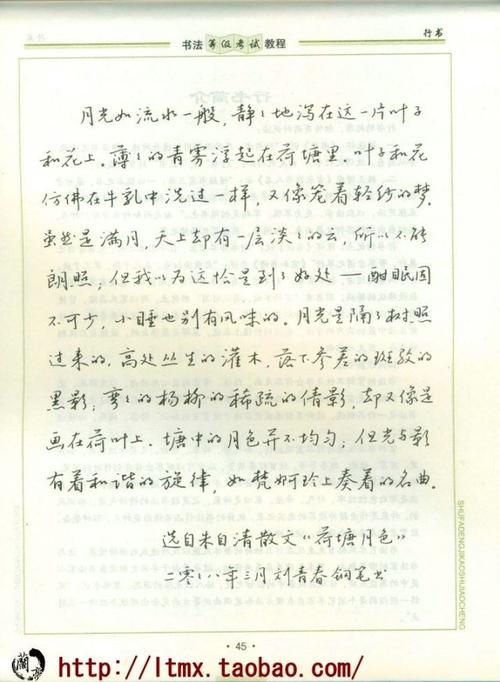 书法等级考试教程
行书
月光如流水一般，静〻地泻在这一片叶子
和花上。薄〻的青雾浮起在荷塘里。叶子和花
仿佛在牛乳中洗过一样，又像笼着轻纱的梦。
虽然是满月，天上却有一层淡〻的云，所以不能
朗照；但我以为这恰是到了好处——酣眠固
不可少，小睡也别有风味的。月光是隔了树照
过来的，高处丛生的灌木，落下参差的斑驳的
黑影；弯〻的杨柳的稀疏的倩影，却又像是
画在荷叶上。塘中的月色并不均匀；但光与影
有着和谐的旋律，如梵婀玲上奏着的名曲。
选自朱自清散文“荷塘月色”
二零〇八年三月刘青春钢笔书
SHUFADENGJIKAOSHIJIAOCHENG
· 45 ·
http://ltmx.taobao.com/